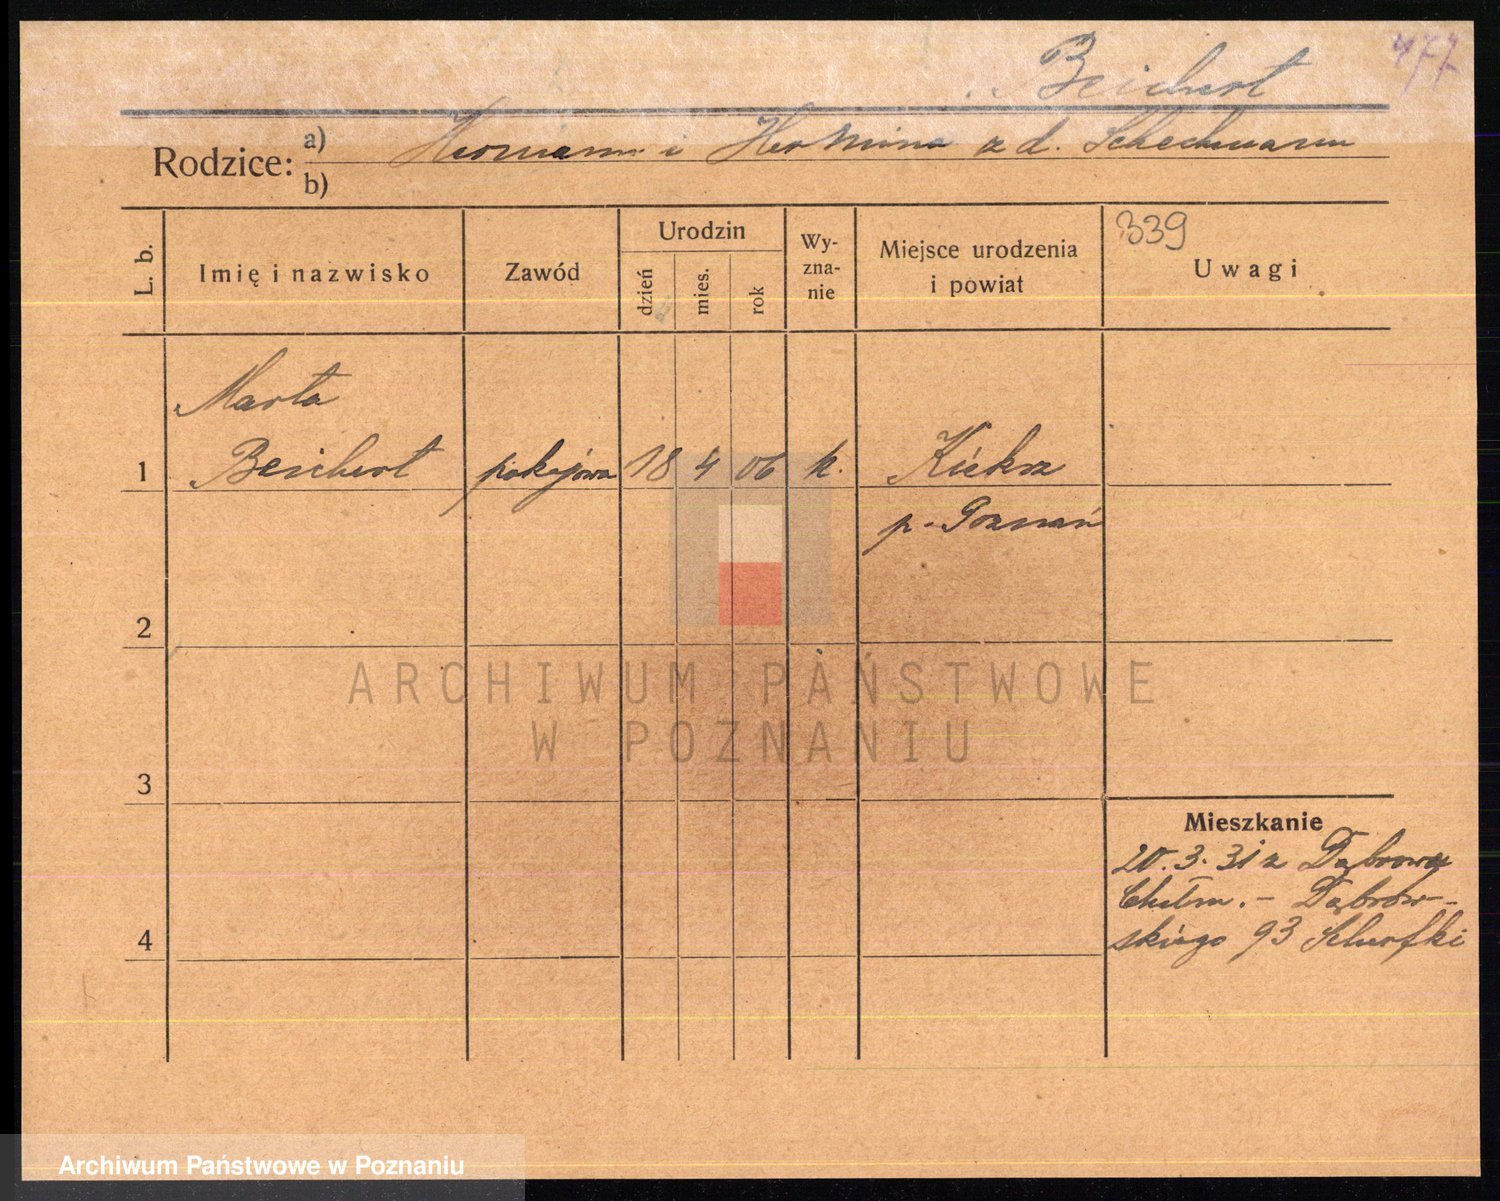 477
Beichert
Rodzice:
a) Hermann i Hermina z d. Schechmann
b)
L. b.
Imię i nazwisko
Zawód
Urodzin
dzień
mies.
rok
Wy-
zna-
nie
Miejsce urodzenia
i powiat
339
Uwagi
Marta
1 Beichert pokojówa 18 4 06 k. Kiekrz
p. Poznań
2
3
Mieszkanie
20.3.31 z Dąbrowa
Chełm. - Dąbrow-
4 skiego 93
ARCHIWUM PAŃSTWOWE
W POZNANIU
Archiwum Państwowe w Poznaniu